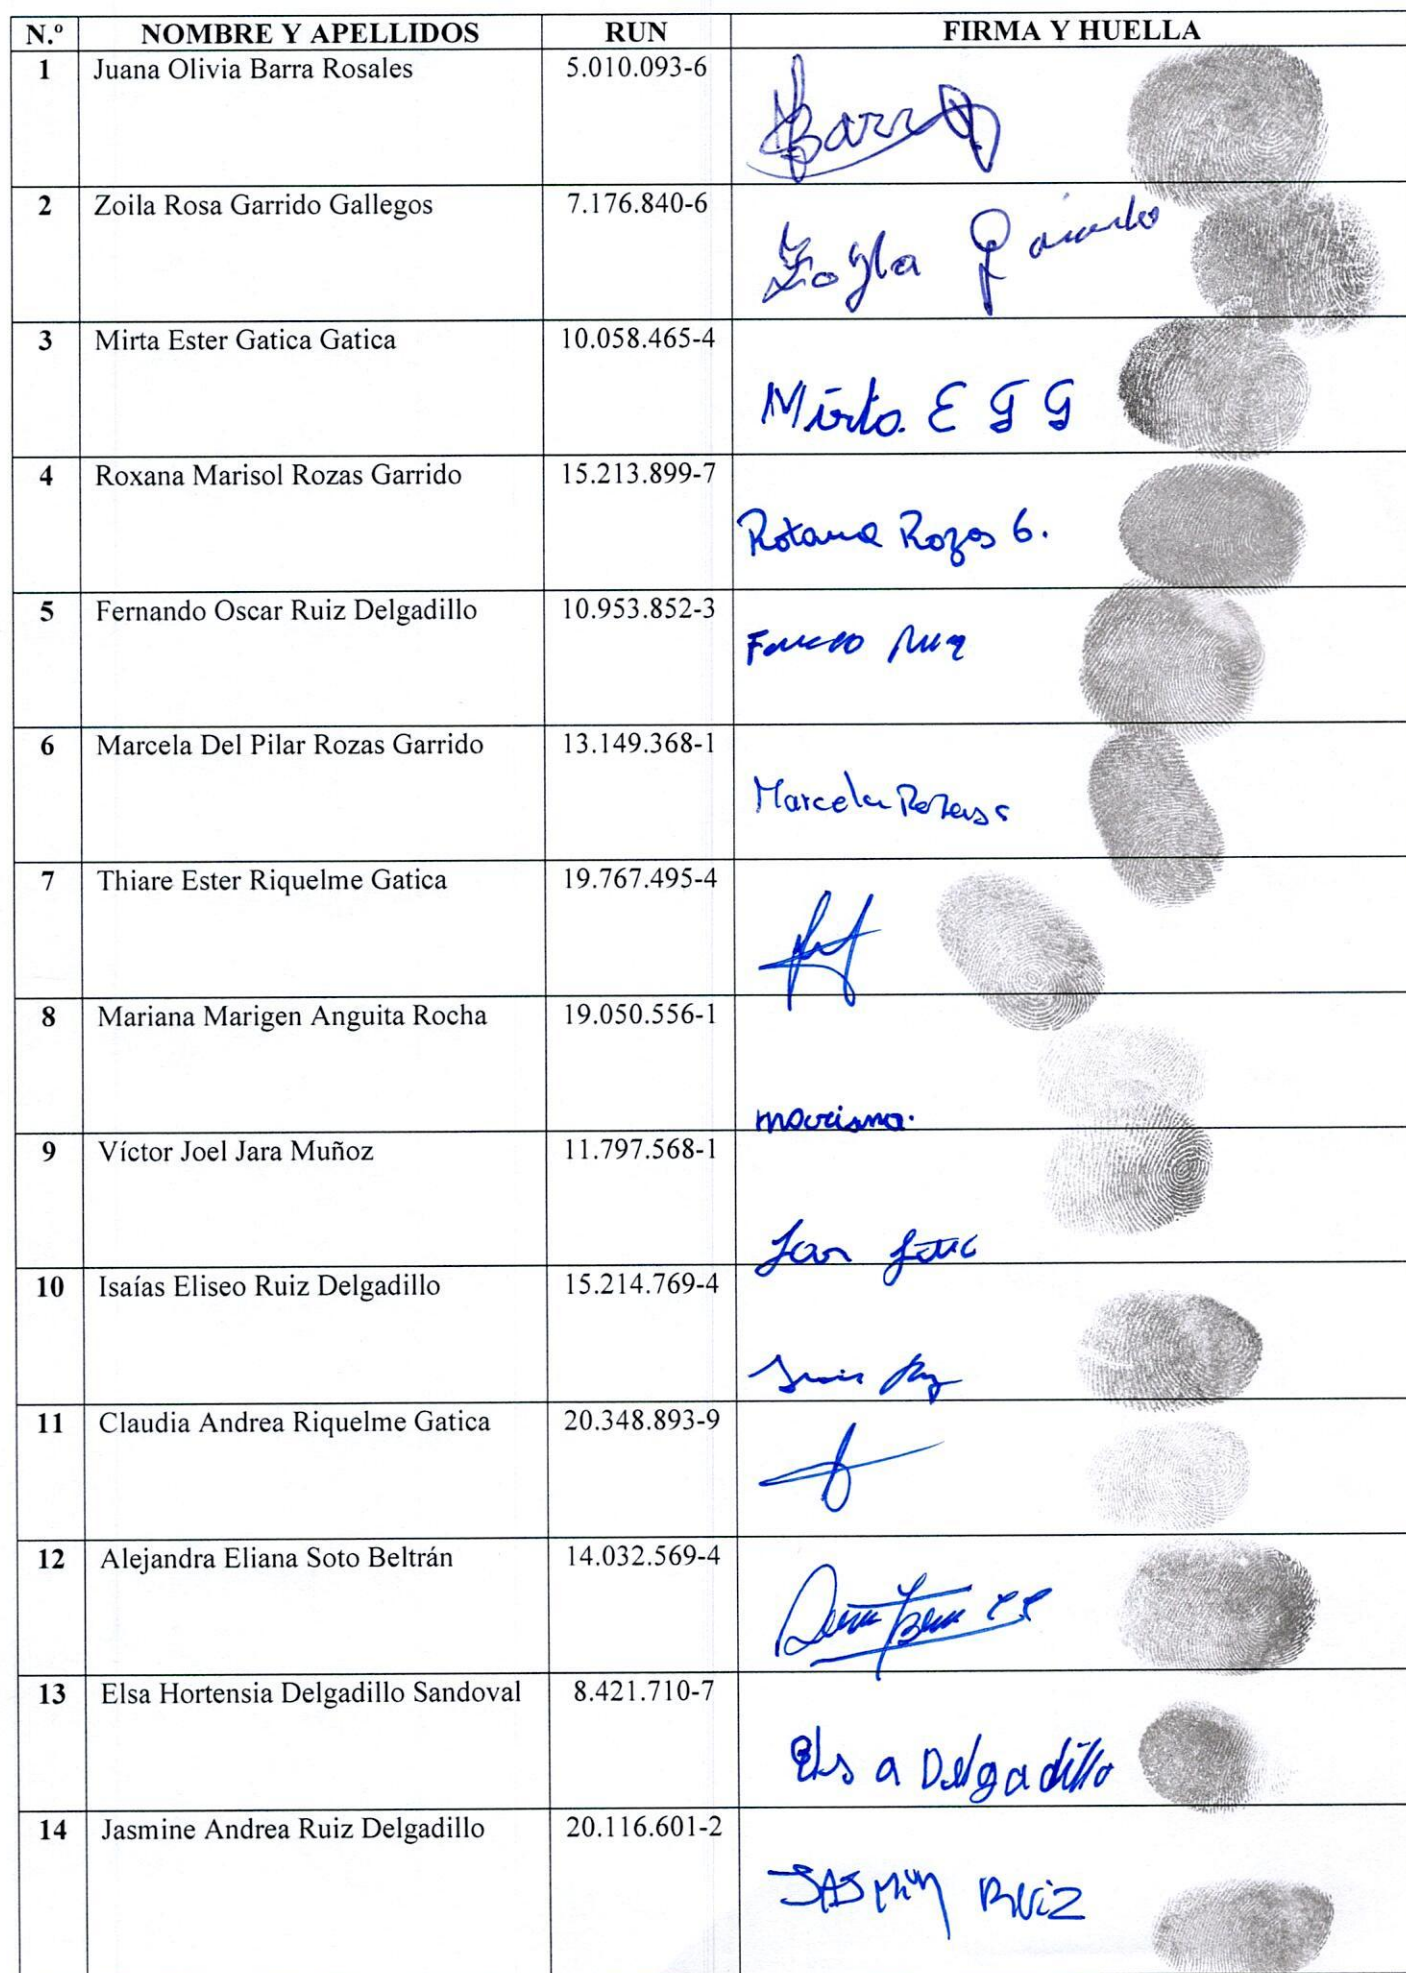 N.º NOMBRE Y APELLIDOS RUN FIRMA Y HUELLA
1 Juana Olivia Barra Rosales 5.010.093-6
Barra
2 Zoila Rosa Garrido Gallegos 7.176.840-6
Zoyla
3 Mirta Ester Gatica Gatica 10.058.465-4
Mirta E G G
4 Roxana Marisol Rozas Garrido 15.213.899-7
Roxana Rozas G.
5 Fernando Oscar Ruiz Delgadillo 10.953.852-3
6 Marcela Del Pilar Rozas Garrido 13.149.368-1
Marcela Rozas G
7 Thiare Ester Riquelme Gatica 19.767.495-4
8 Mariana Marigen Anguita Rocha 19.050.556-1
mariana.
9 Víctor Joel Jara Muñoz 11.797.568-1
10 Isaías Eliseo Ruiz Delgadillo 15.214.769-4
11 Claudia Andrea Riquelme Gatica 20.348.893-9
12 Alejandra Eliana Soto Beltrán 14.032.569-4
13 Elsa Hortensia Delgadillo Sandoval 8.421.710-7
Elsa Delgadillo
14 Jasmine Andrea Ruiz Delgadillo 20.116.601-2
JASMiN RUiZ